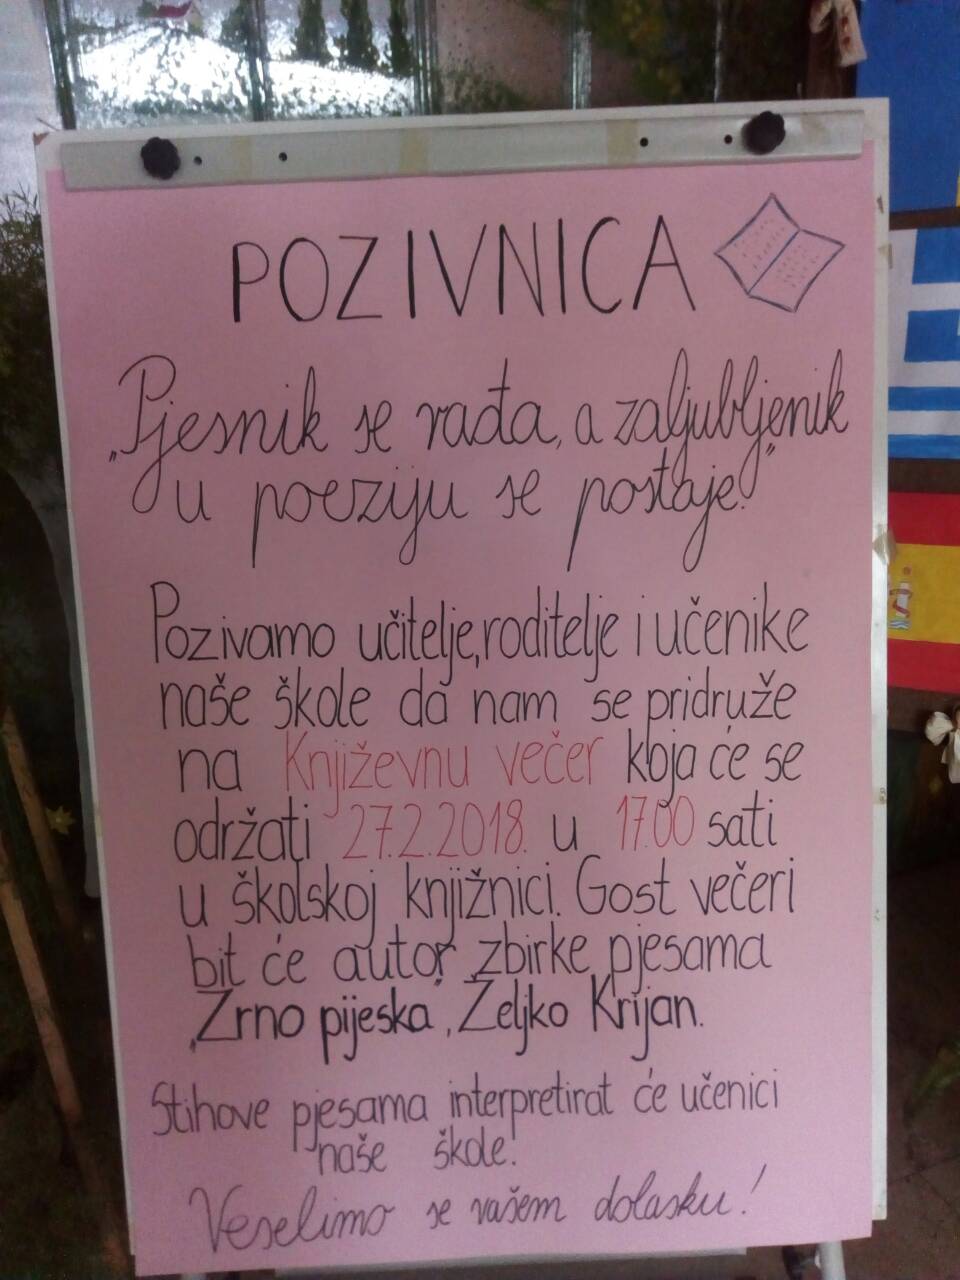 POZIVNICA
„Pjesnik se rađa, a zaljubljenik
u poeziju se postaje."
Pozivamo učitelje,roditelje i učenike
naše škole da nam se pridruže
na Književnu večer koja će se
održati 27.2.2018. u 17.00 sati
u školskoj knjižnici. Gost večeri
bit će autor zbirke pjesama
„Zrno pijeska", Željko Krijan.
Stihove pjesama interpretirat će učenici
naše škole.
Veselimo se vašem dolasku!